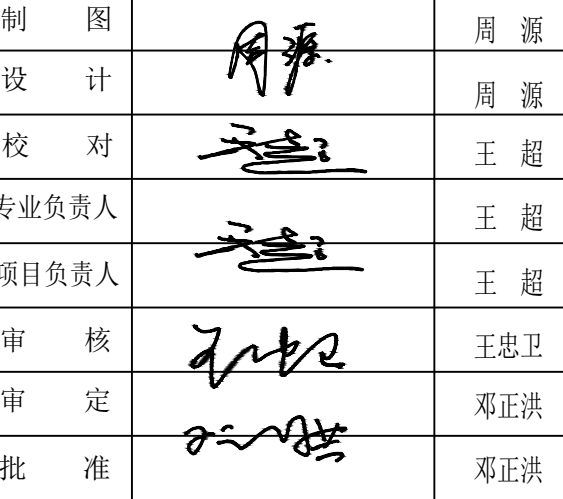 制 图 周 源 周 源
设 计 周 源
校 对 王 超 王 超
专业负责人 王 超
项目负责人 王 超 王 超
审 核 王忠卫 王忠卫
审 定 邓正洪
批 准 邓正洪 邓正洪